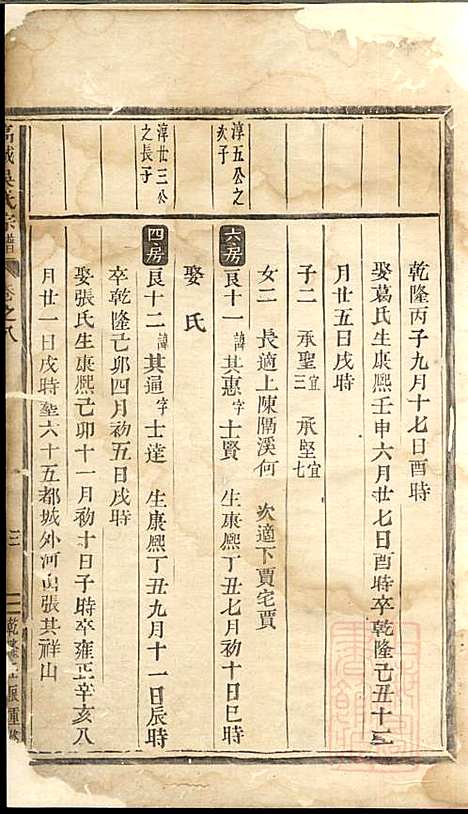 乾隆丙子九月十七日酉時
娶葛氏生康熙壬申六月廿七日酉時卒乾隆己丑十二
月廿五日戌時
子二 承聖宜三 承堅宜七
女二 長適上陳隔溪何 次適下賈宅賈
淳五公之次子
六房 良十一 諱其惠字士賢 生康熙丁丑七月初十日巳時
娶 氏
淳廿三公之長子
四房 良十二 諱其逼字士達 生康熙丁丑九月十一日辰時
卒乾隆己卯四月初五日戌時
娶張氏生康熙己卯十一月初十日子時卒雍正辛亥八
月廿一日戌時塟六十五都城外河山張其祥山
吳氏宗譜 卷之八 三 乾隆